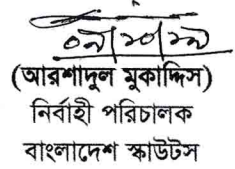 ০৯/১০/১৯
(আরশাদুল মুকাদ্দিস)
নির্বাহী পরিচালক
বাংলাদেশ স্কাউটস